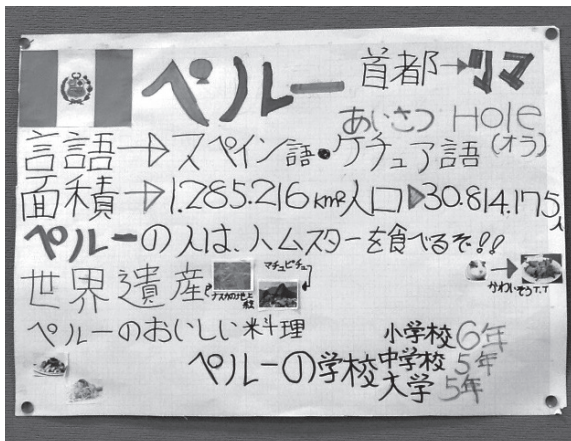 ペルー 首都→リマ
あいさつ Hole (オラ)
言語→スペイン語・ケチュア語
面積→1.285.216km² 人口▶30.814.175人
ペルーの人は、ハムスターを食べるそ!!
世界遺産 ナスカの地上絵 マチュピチュ
かわいそうT.T
ペルーのおいしい料理
ペルーの学校 小学校6年
中学校5年
大学5年